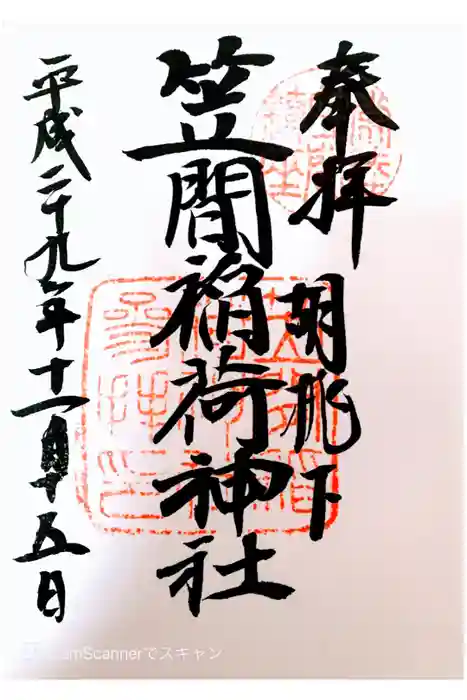 奉拝
胡桃下
笠間稲荷神社
平成二十九年十一月十五日
CamScannerでスキャン